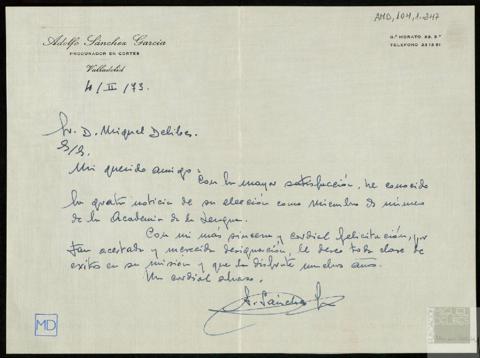 AMD, 104, 1. 247
Adolfo Sánchez García
PROCURADOR EN CORTES
Valladolid
G.ª MORATO 23, 5.º
TELÉFONO
4/II/73.
Sr. D. Miguel Delibes.
Mi querido amigo: Con la mayor satisfacción, he conocido
la grata noticia de su elección como miembro de número
de la Academia de la Lengua.
Con mi más sincera y cordial felicitación, por
tan acertada y merecida designación, le deseo toda clase de
exitos en su misión y que la disfrute muchos años.
Un cordial abrazo.
A. Sánchez
MD